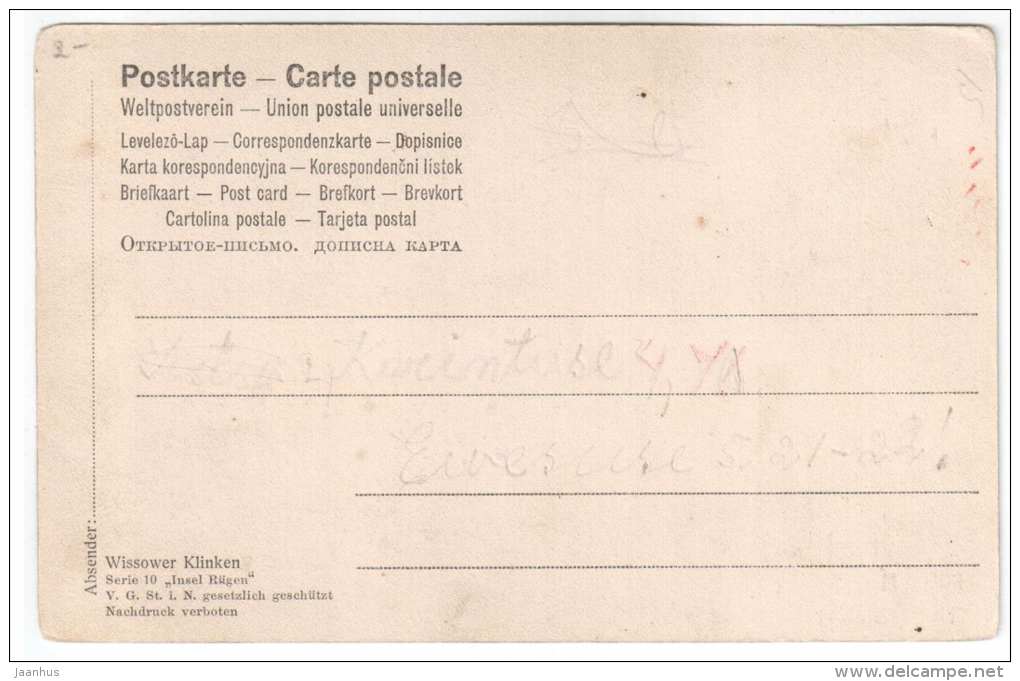 2-
Postkarte — Carte postale
Weltpostverein — Union postale universelle
Levelezõ-Lap — Correspondenzkarte — Dopisnice
Karta korespondencyjna — Korespondenčni lístek
Briefkaart — Post card — Brefkort — Brevkort
Cartolina postale — Tarjeta postal
Открытое-письмо. дописна карта
Absender:
5. 21-22!
Wissower Klinken
Serie 10 „Insel Rügen“
V. G. St. i. N. gesetzlich geschützt
Nachdruck verboten
jaanhus
www.delcampe.net